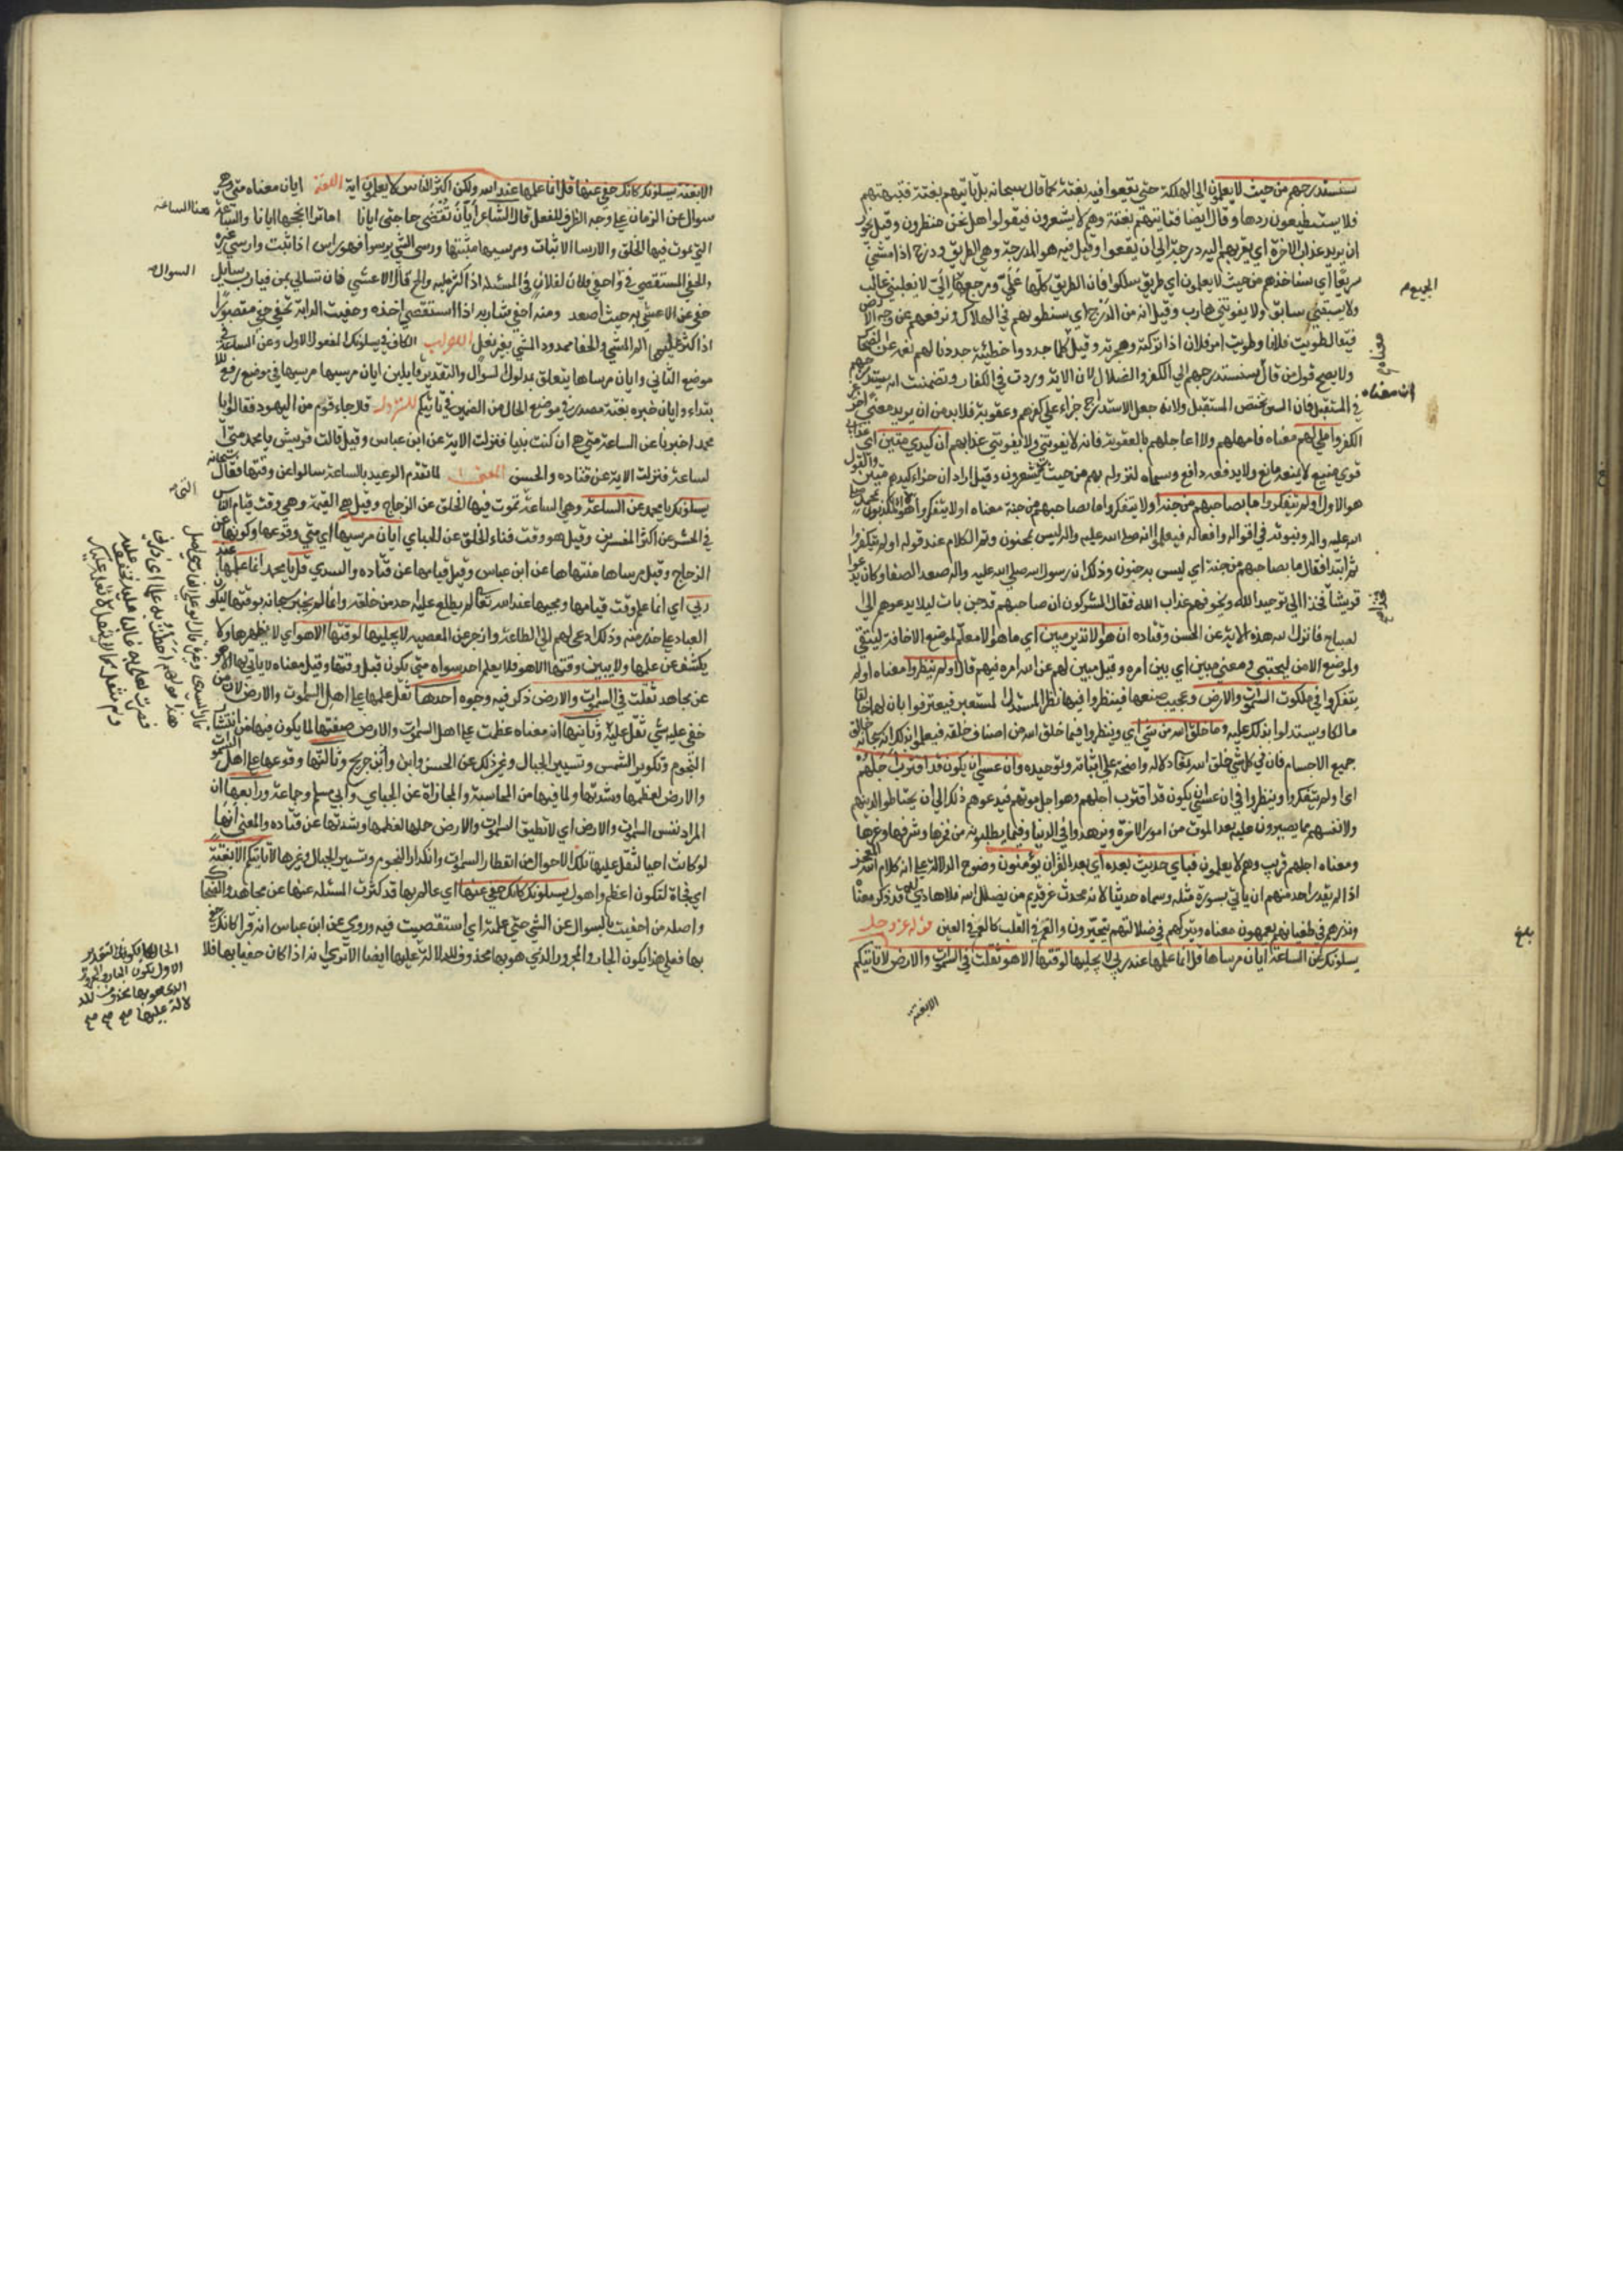 سنستدرجهم من حيث لا يعلمون الى الهلكة حتى يقعوا فيه بغتة كما قال سبحانه بل تاتيهم بغتة فتبهتهم
فلا يستطيعون ردها وقال ايضا فياتيهم بغتة وهم لا يشعرون فيقولوا هل نحن منظرون وقيل يجوز
ان يريد عذاب الاخرة اي يقربهم اليه درجة الى ان يقعوا وقيل فيه هو المدرجة وهي الطريق ودرج اذا مشى
سريعا اي سناخذهم من حيث لا يعلمون اي طريق سلكوا فان الطريق كلها علي ومرجع الجميع الي لا يغلبني غالب
ولا يسبقني سابق ولا يفوتني هارب وقيل انه من الدرج اي سنطويهم في الهلاك ونرفعهم عن وجه الارض
فيقال طويت فلانا وطويت امر فلان اذا تركته وهجرته وقيل معناه كلما جددوا خطيئة جددنا لهم نعمة عن الضحاك
ولا يصح قول من قال ان معناه سنستدرجهم الى الكفر والضلال لان الاية وردت في الكفار وتضمنت انه يستدرجهم
في المستقبل فان السين تختص المستقبل ولانه جعل الاستدراج جزاء على كفرهم وعقوبة فلا بد من ان يريد معنى اخر غير
الكفر واملي لهم معناه فامهلهم ولا اعاجلهم بالعقوبة فانه لا يفوتني ولا يفوتني عذابهم ان كيدي متين اي عذابي
قوي منيع لا يمنعه مانع ولا يدفعه دافع وسماه لنزوله بهم من حيث لا يشعرون وقيل اراد ان جزاء كيدهم متين والقول
هو الاول اولم يتفكروا ما بصاحبهم من جنة معناه اولم يتفكروا هؤلاء المكذبون بمحمد صلى
الله عليه واله وبنبوته في اقواله وافعاله فيعلموا انه صلى الله عليه واله ليس بمجنون وتم الكلام عند قوله اولم يتفكروا
ثم ابتدا فقال ما بصاحبهم من جنة اي ليس به جنون وذلك ان رسول الله صلى الله عليه واله صعد الصفا وكان يدعوا
قريشا فخذا فخذا الى توحيد الله ويخوفهم عذاب الله فقال المشركون ان صاحبهم قد جن بات ليلا يدعوهم الى
الصباح فانزل الله هذه الاية عن الحسن وقتاده ان هو الا نذير مبين اي ما هو الا معلم لموضع الاخافة ليتقى
ولموضع الامن ليجتبى ومعنى مبين اي بين امره وقيل مبين لهم عن الله امره فيهم قال اولم ينظروا معناه اولم
يتفكروا في ملكوت السموات والارض وعجيب صنعها فينظروا فيها نظر المستدل المستعبر فيعترفوا بان لها خالقا
مالكا ويستدلوا بذلك عليه وما خلق الله من شي اي وينظروا فيما خلق الله من اصناف خلقه فيعلموا بذلك انه سبحانه خالق
جميع الاجسام فان في كل شي خلق الله تعالى دلالة واضحة على اثباته وتوحيده وان عسى ان يكون قد اقترب اجلهم
اي اولم يتفكروا وينظروا في ان عسى ان يكون قد اقترب اجلهم وهو اجل موتهم فيدعوهم ذلك الى ان يحتاطوا لدينهم
ولانفسهم مما يصيرون عليه بعد الموت من امور الاخرة ويزهدوا في الدنيا وفيما يطلبونه من فخرها وشرفها وعزها
ومعناه اجلهم قريب وهم لا يعلمون فباي حديث بعده اي بعد القران يؤمنون مع وضوح الدلالة على انه كلام الله المعجز
اذا لم يقدر احد منهم ان ياتي بسورة مثله وسماه حديثا لانه محدث غير قديم من يضلل الله فلا هادي له قد ذكر معناه
ونذرهم في طغيانهم يعمهون معناه ونتركهم في ضلالتهم يتحيرون والعمه في القلب كالعمى في العين قوله عز وجل
يسلونك عن الساعة ايان مرساها قل انما علمها عند ربي لا يجليها لوقتها الا هو ثقلت في السموات والارض لا تاتيكم
الا بغتة
الجميع
معناه
ان معناه
فخذا
بلغ
الا بغتة يسلونك كانك حفي عنها قل انما علمها عند الله ولكن اكثر الناس لا يعلمون اية اللغة ايان معناه متى وهي
سوال عن الزمان على وجه الظرف للفعل قال الشاعر ايان تقضى حاجتي ايانا اما ترا لنجحها ايانا والساعة
التي يموت فيها الخلق والارسا الاثبات ومرسيها مثبتها ورسى الشي يرسوا فهو راس اذا ثبت وارسى غيره
والحفي المستقصي في السوال واحفى فلان لفلان في المسئلة اذا اكثر عليه والح قال الاعشى فان تسالي عني فيا رب سايل
حفي عن الاعشى به حيث اصعد ومنه احفى شاربه اذا استقصى اخذه وحفيت الدابة تحفى حفى مقصورا
اذا كثر عليها الم المشي والحفا ممدود المشي بغير نعل الاعراب الكاف في يسلونك المفعول الاول وعن الساعة في
موضع الثاني وايان مرساها يتعلق بمدلول السوال والتقدير قايلين ايان مرسيها مرسيها في موضع رفع بالا
بتداء وايان خبره بغتة مصدر في موضع الحال من الضمير في تاتيكم النزول قال جاء قوم من اليهود فقالوا يا
محمد اخبرنا عن الساعة متى هي ان كنت نبيا فنزلت الاية عن ابن عباس وقيل قالت قريش يا محمد متى ا
لساعة فنزلت الاية عن قتاده والحسن المعنى لما تقدم الوعيد بالساعة سالوا عن وقتها فقال سبحانه
يسلونك يا محمد عن الساعة وهي الساعة التي تموت فيها الخلق عن الزجاج وقيل هي القيمة وهي وقت قيام الناس
في الحشر عن اكثر المفسرين وقيل هو وقت فناء الخلق عن الجباي ايان مرسيها اي متى وقوعها وكونها عن
الزجاج وقيل مرساها منتهاها عن ابن عباس وقيل قيامها عن قتاده والسدي قل يا محمد انما علمها عند
ربي اي انما علم وقت قيامها ومجيها عند الله تعالى لم يطلع عليه احد من خلقه وانما لم يخبر سبحانه بوقتها ليكون
العباد على حذر منه وذلك ادعى لهم الى الطاعة وازجر عن المعصية لا يجليها لوقتها الا هو اي لا يظهرها ولا
يكشف عن علمها ولا يبين وقتها الا هو فلا يعلم احد سواه متى يكون قبل وقتها وقيل معناه لا ياتي بها الا هو
عن مجاهد ثقلت في السموات والارض ذكر فيه وجوه احدها ثقل علمها على اهل السموات والارض لان من
خفي عليه شي ثقل عليه وثانيها انه معناه عظمت على اهل السموات والارض صفتها لما يكون فيها من انتشار
النجوم وتكوير الشمس وتسيير الجبال وغير ذلك عن الحسن وابن جريج وثالثها وقوعها على اهل السموات
والارض لعظمها وشدتها ولما فيها من المحاسبة والمجازاة عن الجباي وابي مسلم وجماعة ورابعها ان
المراد نفس السموات والارض اي لا تطيق السموات والارض حملها لعظمها وشدتها عن قتاده والمعنى انها
لو كانت احيا لثقل عليها تلك الاحوال من انفطار السموات وانكدار النجوم وتسيير الجبال وغيرها لا تاتيكم الا بغتة
اي فجاة لتكون اعظم واهول يسلونك كانك حفي عنها اي عالم بها قد كثرت المسئلة عنها عن مجاهد والضحاك
واصله من احفيت بالسوال عن الشي حتى علمته اي استقصيت فيه وروي عن ابن عباس انه قرا كانك حفي
بها فعلى هذا يكون الجار والمجرور الذي هو بها محذوفا للدلالة عليها ايضا الا ترى انه اذا كان حفيا بها فلا
هنا الساعة
السوال
التي
الاول يكون الجار والمجرور
الذي هو بها محذوف للد
لالة عليها